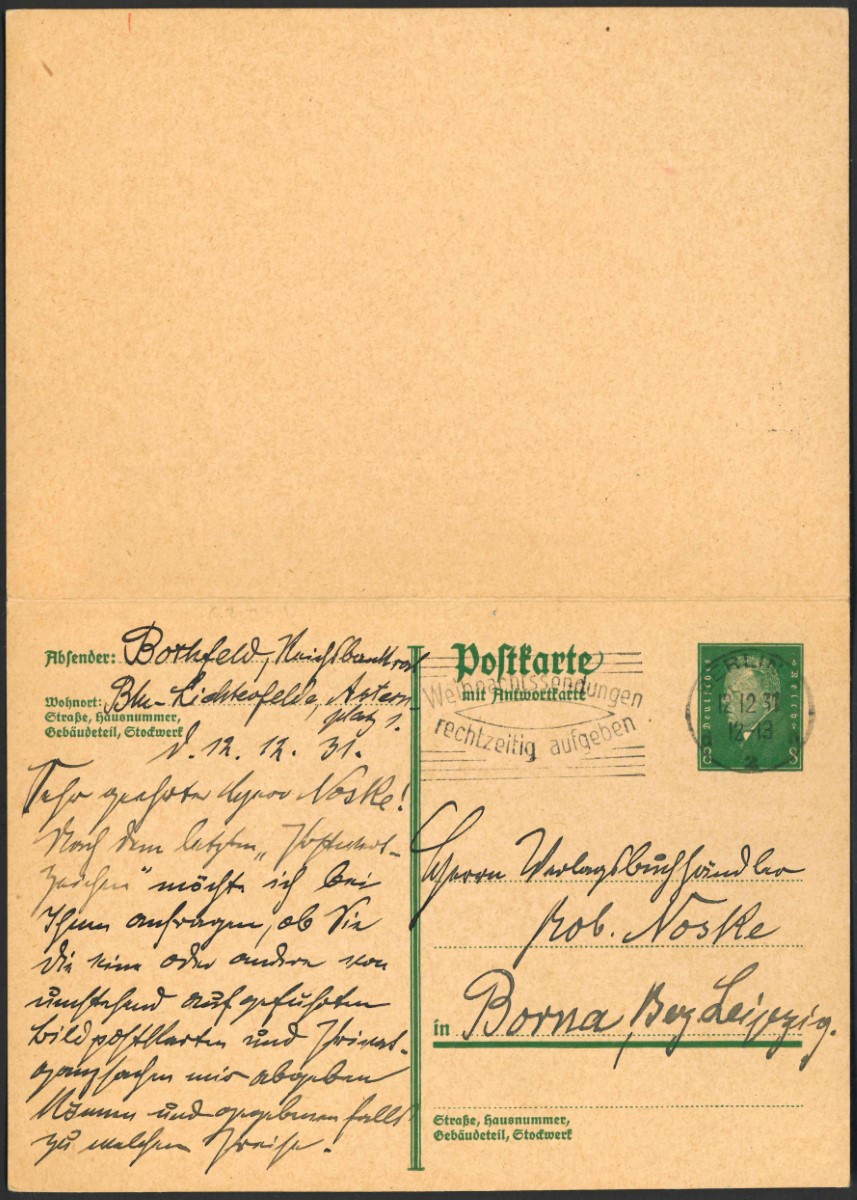 Absender: Bothfeld, Reichsbankrat
Wohnort: Bln-Lichterfelde, Astern-
Straße, Hausnummer,
Gebäudeteil, Stockwerk
platz 1.
d. 12. 12. 31.
Sehr geehrter Herr Noske!
Nach dem letzten „Postwert-
zeichen" möchte ich bei
Ihnen anfragen, ob Sie
die eine oder andere von
umstehend aufgeführten
Bildpostkarten und Privat-
ganzsachen mir abgeben
können und gegebenenfalls
zu welchem Preise.
Postkarte
mit Antwortkarte
Weihnachtssendungen
rechtzeitig aufgeben
Deutsches Reich
8 8
BERLIN
12 12 31
12-13
2
Herrn Verlagsbuchhändler
Rob. Noske
in Borna, Bez Leipzig.
Straße, Hausnummer,
Gebäudeteil, Stockwerk